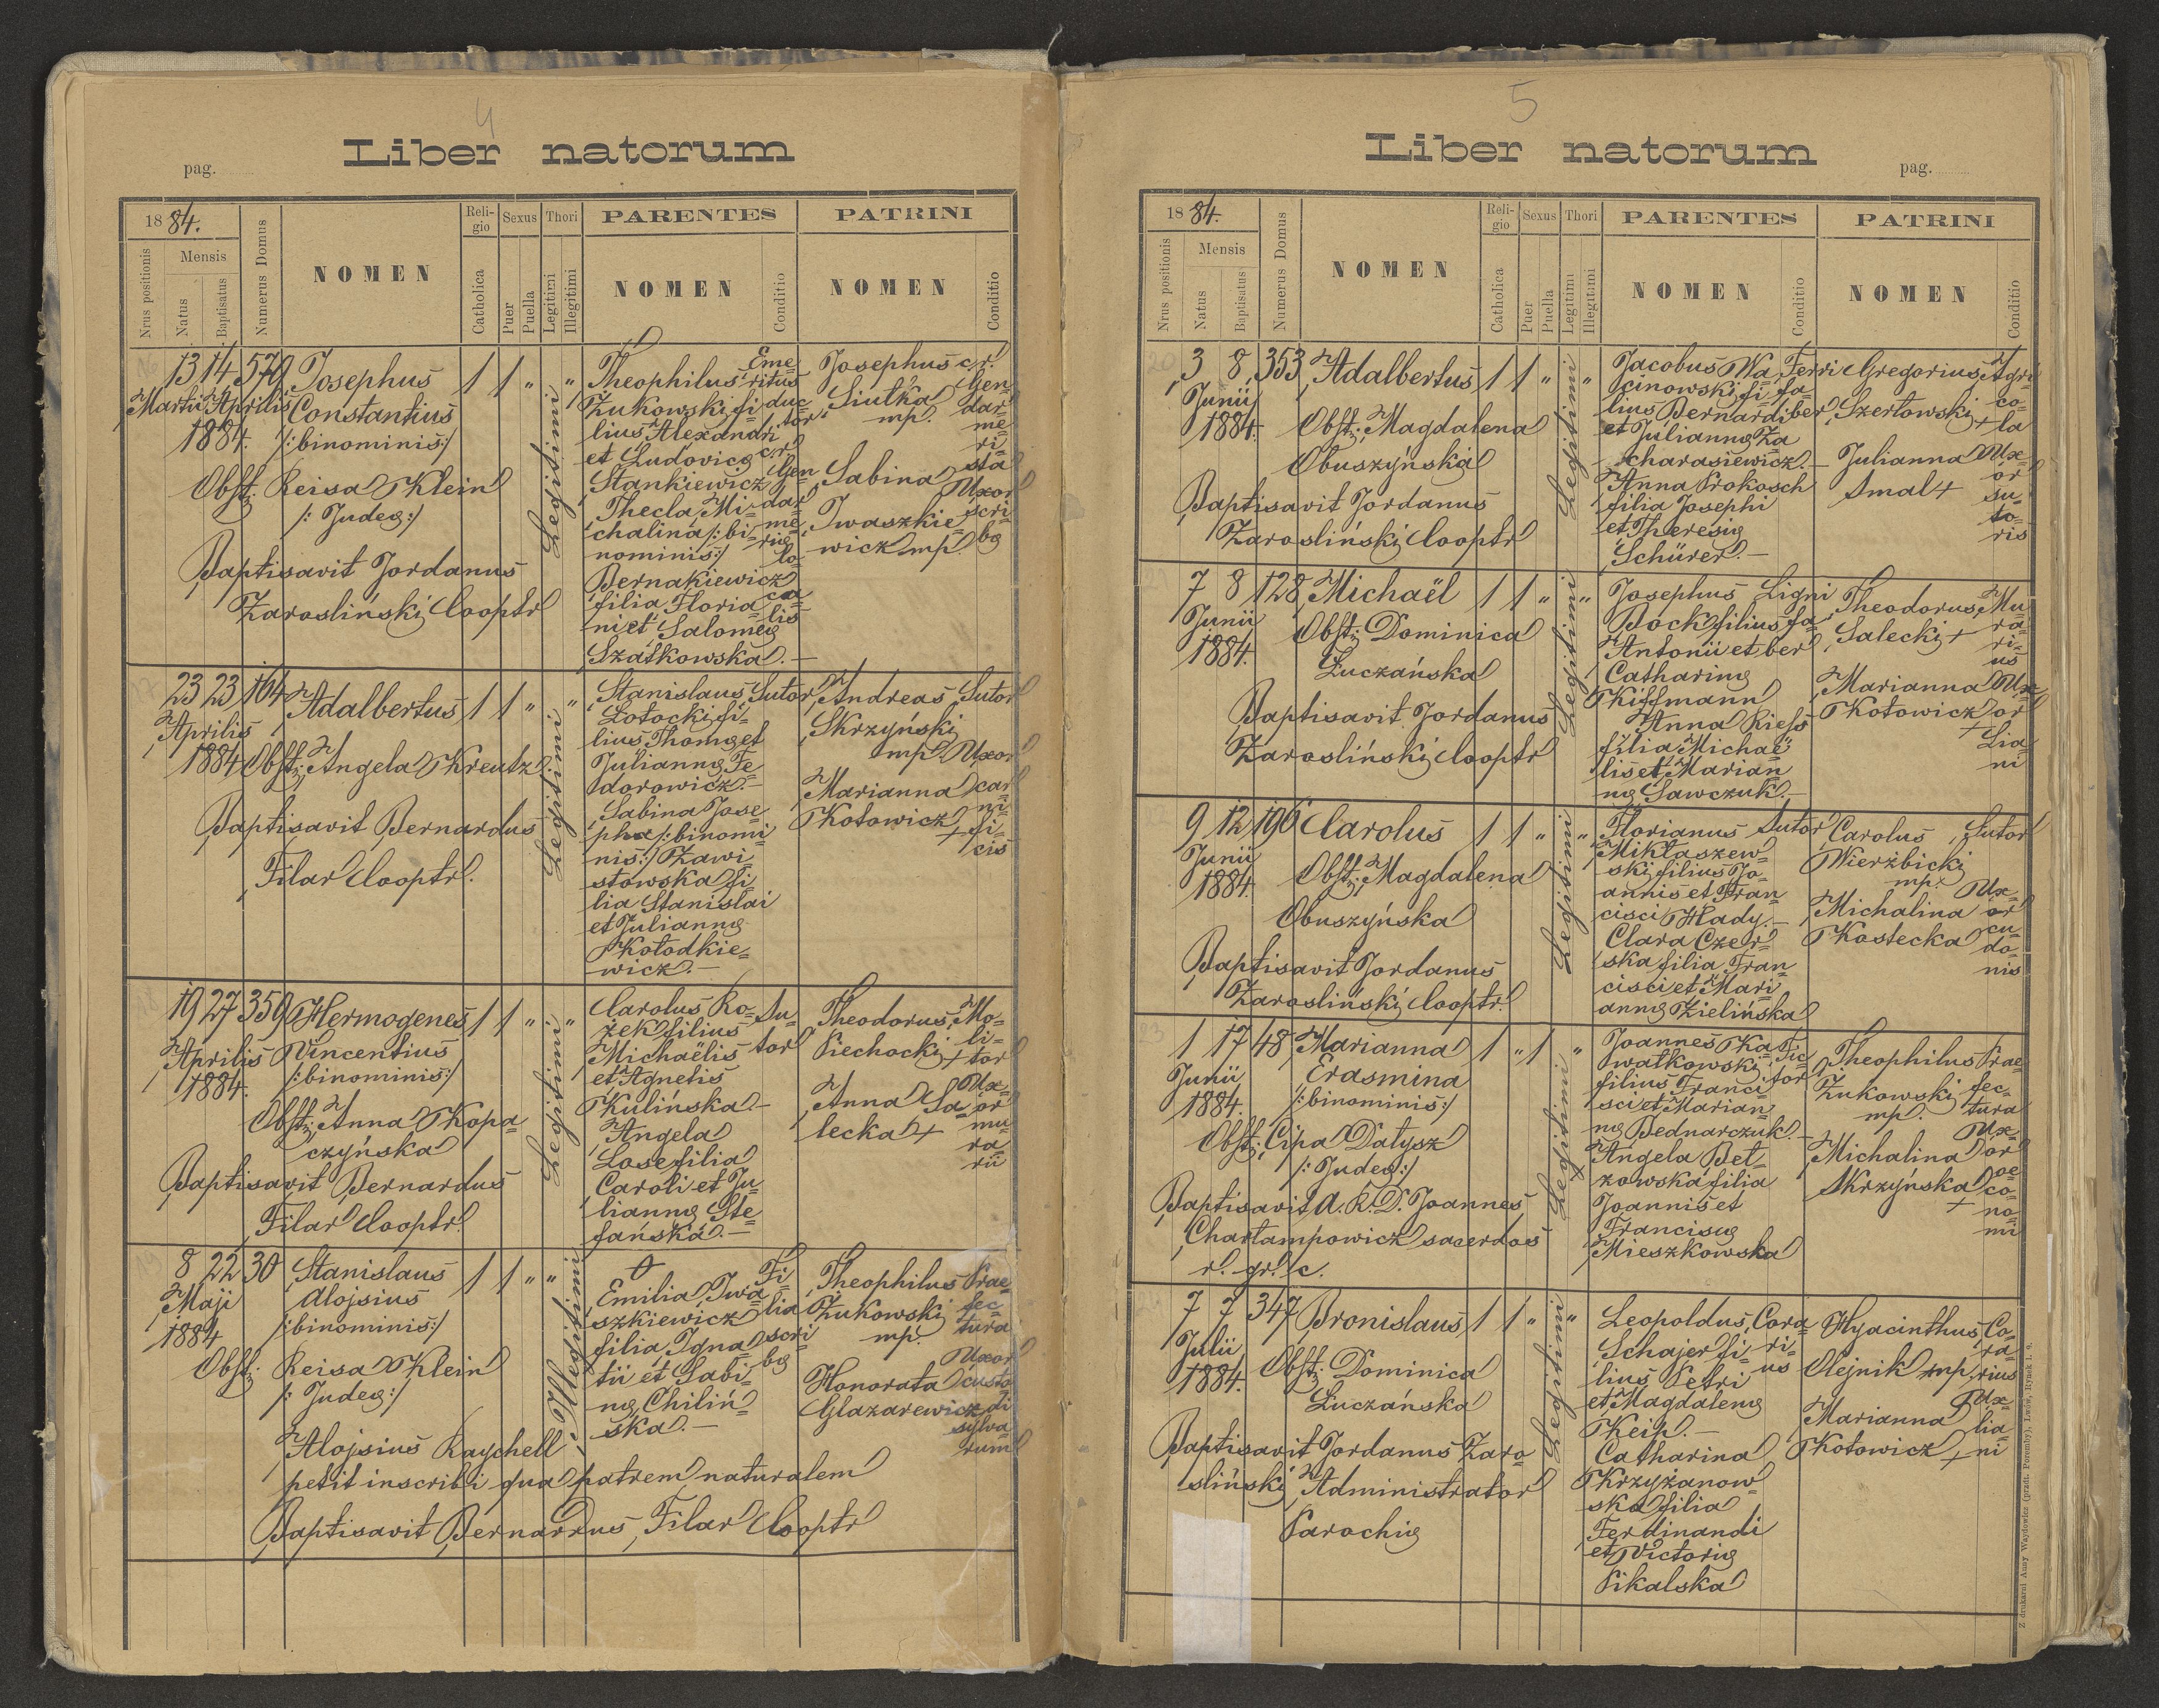 4
Liber natorum
pag.
1884.
Nrus positionis
Mensis
Natus
Baptisatus
Numerus Domus
NOMEN
Reli-
gio
Catholica
Sexus
Puer
Puella
Thori
Legitimi
Illegitimi
PARENTES
NOMEN
Conditio
PATRINI
NOMEN
Conditio
13 14 579 Josephus 1 1 " "
Martii Aprilis Constantius
1884. /:binominis:/
Obst: Reisa Klein
/: Judea:/
Baptisavit Jordanus
Zarosliński Cooptr
Legitimi
Theophilus
Żukowski fi=
lius Alexandri
et Ludovica
Stankiewicz
Thecla Mi=
chalina /:bi=
nominis:/
Bernakiewicz
filia Floria
ni et Salomea
Szatkowska.—
Eme=
ritus
duc=
tor
c.r.
Gen
dar
me
riae
lo=
ca
lis
Josephus
Siutka
mp.
Sabina
Iwaszkie=
wicz mp
c.r.
Gen=
dar=
me
ri=
sta
Uxor
scri=
bae
23 23 164 Adalbertus 1 1 " "
Aprilis
1884 Obst: Angela Kreutz
Baptisavit Bernardus
Filar Cooptr.
Legitimi
Stanislaus
Łotocki fi=
lius Thomae et
Juliannae Fe
dorowicz.—
Sabina Jose=
pha /:binomi
nis:/ Zawi=
stowska fi
lia Stanislai
et Juliannae
Kołodkie=
wicz.—
Sutor
Andreas
Skrzyński
mp
Marianna
Kotowicz
+
Sutor
Uxor
car
ni=
fi=
cis
19 27 359 Hermogenes 1 1 " "
Aprilis Vincentius
1884. /:binominis:/
Obst: Anna Kopa=
czyńska
Baptisavit Bernardus
Filar Cooptr.
Legitimi
Carolus Ro=
żek filius
Michaëlis
et Agnetis
Kulińska.—
Angela
Lose filia
Caroli et Ju
liannae Ste
fańska.—
Su=
tor
Theodorus
Piechocki +
Anna Sa=
lecka +
Mo=
li=
tor
Ux=
or
mu=
ra=
rii
8 22 30 Stanislaus 1 1 " "
Maji Alojsius
1884 /:binominis:/
Obst: Reisa Klein
/: Judea:/
Illegitimi
Emilia Iwa=
szkiewicz
filia Igna=
tii et Sabi=
nae Chiliń=
ska.—
Fi=
lia
scri
bae
Theophilus
Żukowski
mp.
Honorata
Glazarewicz
Prae=
fec=
tura
Uxor
custo
di
sylva=
rum
Alojsius Raychell
petit inscribi qua patrem naturalem
Baptisavit Bernardus Filar Cooptr
5
Liber natorum
pag.
1884.
Nrus positionis
Mensis
Natus
Baptisatus
Numerus Domus
NOMEN
Reli-
gio
Catholica
Sexus
Puer
Puella
Thori
Legitimi
Illegitimi
PARENTES
NOMEN
Conditio
PATRINI
NOMEN
Conditio
3 8 353 Adalbertus 1 1 " "
Junii
1884. Obst: Magdalena
Obuszyńska
Baptisavit Jordanus
Zarosliński Cooptr
Legitimi
Jacobus Wa
cinowski fi
lius Bernardi
et Julianna Za
charasiewicz.—
Anna Prokosch
filia Josephi
et Theresiae
Schürer.—
Ferri
fa=
ber
Gregorius
Szerłowski +
Julianna
Smal +
Agri
co=
la
Ux=
or
su=
to=
ris
7 8 128 Michaël 1 1 " "
Junii
1884. Obst: Dominica
Łuczańska
Baptisavit Jordanus
Zarosliński Cooptr
Legitimi
Josephus
Bock filius
Antonii et
Catharinae
Kiffmann
Anna Riess
filia Michaë
lis et Marian
nae Sawczuk.—
Ligni
fa=
ber
Theodorus
Salecki +
Marianna
Kotowicz
+
Mu
ra=
ri=
us
Ux
or
Lia=
ni
9 12 196 Carolus 1 1 " "
Junii
1884. Obst: Magdalena
Obuszyńska
Baptisavit Jordanus
Zarosliński Cooptr.
Legitimi
Florianus
Mikłaszew=
ski filius Jo=
annis et Fran=
cisci Hlady.—
Clara Czer=
ska filia Fran=
cisci et Mari
annae Zielińska
Sutor
Carolus
Wierzbicki
mp.
Michalina
Kostecka
Sutor
Ux=
or
cu=
do=
nis
1 17 48 Marianna 1 " 1 "
Junii Erasmina
1884. /:binominis:/
Obst: Cipa Datysz
/: Judea:/
Baptisavit A. R. D. Joannes
Chartampowicz sacerdos
r. gr. c.
Legitimi
Joannes Ka
watkowski
filius Franci
sci et Marian
nae Bednarczuk.—
Angela Bet=
zowska filia
Joannis et
Franciscae
Mieszkowska
Fic
tor
Theophilus
Żukowski
mp.
Michalina
Skrzyńska
+
Prae=
fec=
tura
Ux=
or
oe=
co=
no=
mi
7 7 347 Bronislaus 1 1 " "
Julii
1884. Obst: Dominica
Łuczańska
Baptisavit Jordanus Zaro=
sliński Administrator
Parochiae
Legitimi
Leopoldus
Schajer fi=
lius Petri
et Magdalenae
Keip.—
Catharina
Krzyżanow=
ska filia
Ferdinandi
et Victoriae
Pikalska
Cora=
ri=
us
Hyacinthus
Olejnik mp
Marianna
Kotowicz +
Co=
ra=
rius
Ux=
lia=
ni
Z drukarni Anny Wajdowicz (przedt. Poremby), Lwów, Rynek l. 9.